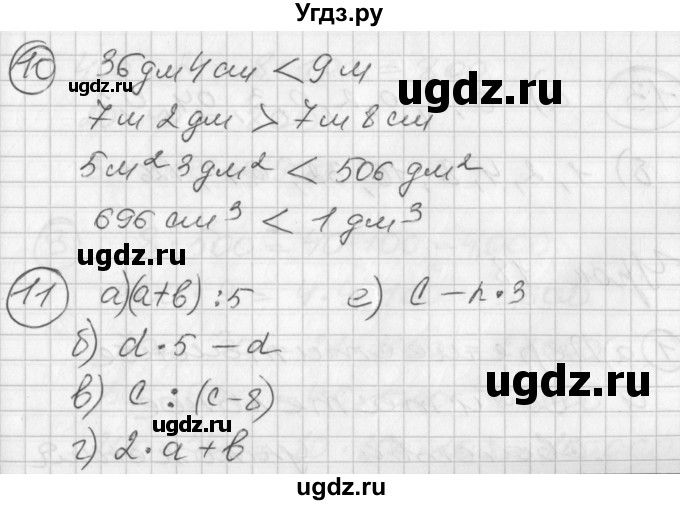 Угдз.ру
10 36дм 4см < 9м
ugdz.ru ugdz.ru
7м 2дм > 7м 8см
5м² 3дм² < 506дм²
696см³ < 1дм³
ugdz.ru ugdz.ru
11 а)(а+в) : 5 е) с − n · 3
б) d · 5 − d
ugdz.ru ugdz.ru
в) с : (с−8)
г) 2 · а + в
ugdz.ru